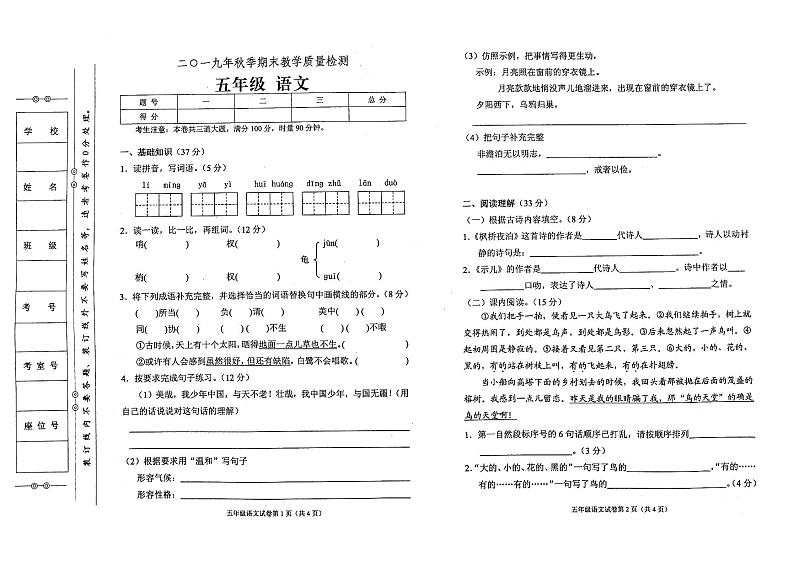 学 校
姓 名
班 级
考 号
考 室 号
座 位 号
装订线内不要答题、装订线外不要写姓名等，违者考卷作0分处理。
二〇一九年秋季期末教学质量检测
五年级 语文
题 号 一 二 三 总 分
得 分
考生注意：本卷共三道大题，满分 100 分，时量 90 分钟。
一、基础知识（37 分）
1. 读拼音，写词语。（5 分）
lí míng yā yì huī huáng dīng zhǔ lān duò
2. 读一读，比一比，再组词。（12 分）
哨( ) 权( ) jūn( )
龟
梢( ) 杈( ) guī( )
3. 将下列成语补充完整，并选择恰当的词语替换句中画横线的部分。（8 分）
( )所当( ) 负( )请( ) 美中( )( )
同( )协( ) ( )( )不生 ( )( )不暇
①古时候，天上有十个太阳，晒得地面一点儿草也不生。( )
②或许有人会感到虽然很好，但还有缺陷，白鹭不会唱歌。( )
4. 按要求完成句子练习。（12 分）
（1）美哉，我少年中国，与天不老！壮哉，我中国少年，与国无疆！（用
自己的话说说对这句话的理解）
（2）根据要求用“温和”写句子
形容气候：
形容性格：
五年级语文试卷第 1 页（共 4 页）
（3）仿照示例，把事情写得更生动。
示例：月亮照在窗前的穿衣镜上。
月亮款款地悄没声儿地溜进来，出现在窗前的穿衣镜上了。
夕阳西下，乌鸦归巢。
（4）把句子补充完整
非澹泊无以明志，。
，戒奢以俭。
二、阅读理解（33 分）
（一）根据古诗内容填空。（8 分）
1.《枫桥夜泊》这首诗的作者是代诗人，诗人以动衬
静的诗句是：。
2.《示儿》的作者是代诗人。诗中作者以
口吻，表达了诗人、之情。
（二）课内阅读。（15 分）
①我们把手一拍，便看见一只大鸟飞了起来。②我们继续拍手，树上就
变得热闹了，到处都是鸟声，到处都是鸟影。③后来忽然起了一声鸟叫。④
起初周围是静寂的。⑤接着又看见第二只、第三只。⑥大的，小的、花的、
黑的，有的站在树枝上叫，有的飞起来，有的在扑翅膀。
当小船向高塔下面的乡村划去的时候，我回头看那被抛在后面的茂盛的
榕树。我感到一点儿留恋。昨天是我的眼睛骗了我，那“鸟的天堂”的确是
鸟的天堂啊！
1. 第一自然段标序号的 6 句话顺序已打乱，请按顺序排列
。（3 分）
2.“大的、小的、花的、黑的”一句写了鸟的，“有的……
有的……有的……”一句写了鸟的。（4 分）
五年级语文试卷第 2 页（共 4 页）